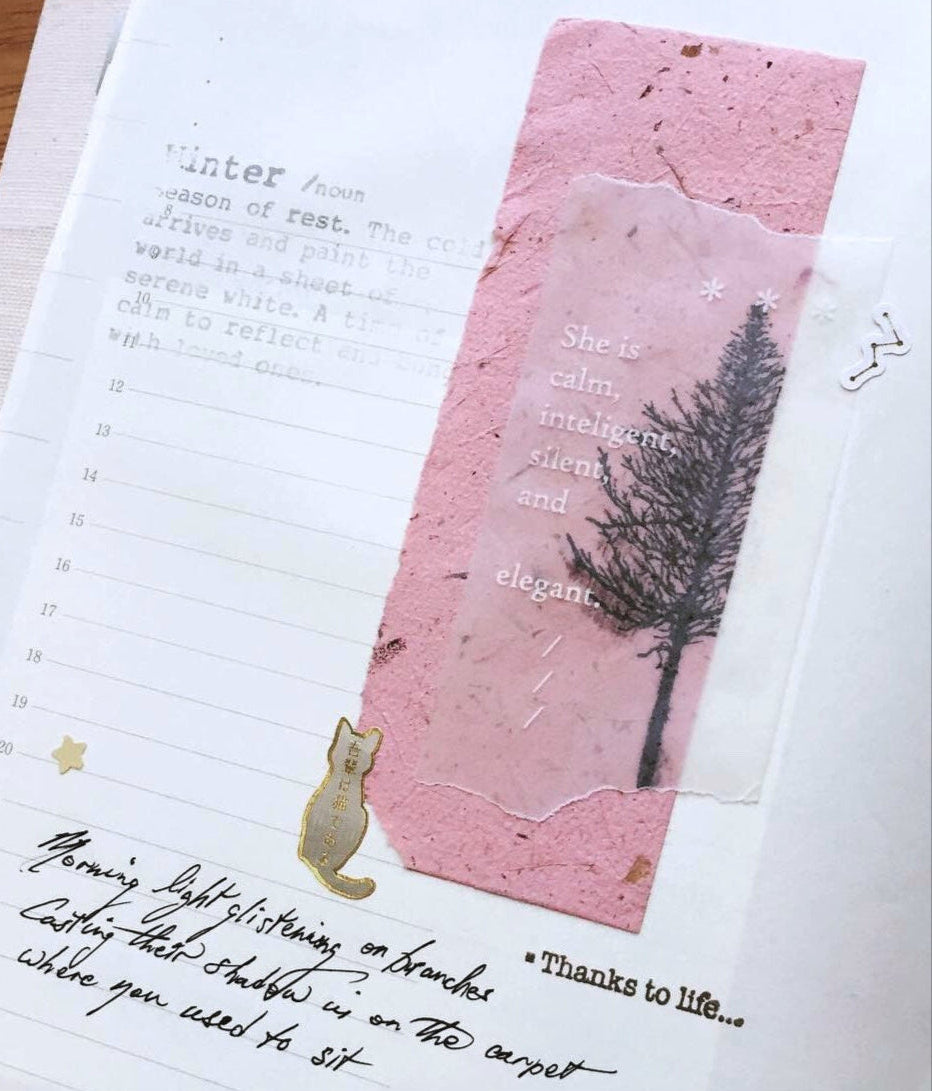 Winter /noun
season of rest. The cold
arrives and paint the
world in a sheet of
serene white. A time of
calm to reflect and
with loved ones.
8
9
10
11
12
13
14
15
16
17
18
19
20
She is
calm,
inteligent,
silent,
and
elegant.
/
/
/
Morning light glistening on branches
Casting their shadow on the carpet
where you used to sit
"Thanks to life...